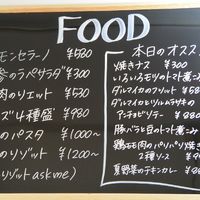 FOOD
モンセラーノ ¥580
参のラペサラダ ¥300
肉のリエット ¥530
ズ4種盛 ¥980
のパスタ ¥1000~
のリゾット ¥1200~
リゾット ask me)
本日のオスス
焼きナス ¥300
いろいろモツのトマト煮
ダルマイカのフリット ¥580
ダルマイカとツルムラサキの
アンチョビソテー ¥880
豚バラと豆のトマト煮
鶏モモ肉のパリパリ焼き
2種ソース ¥9
夏野菜のチキンカレー